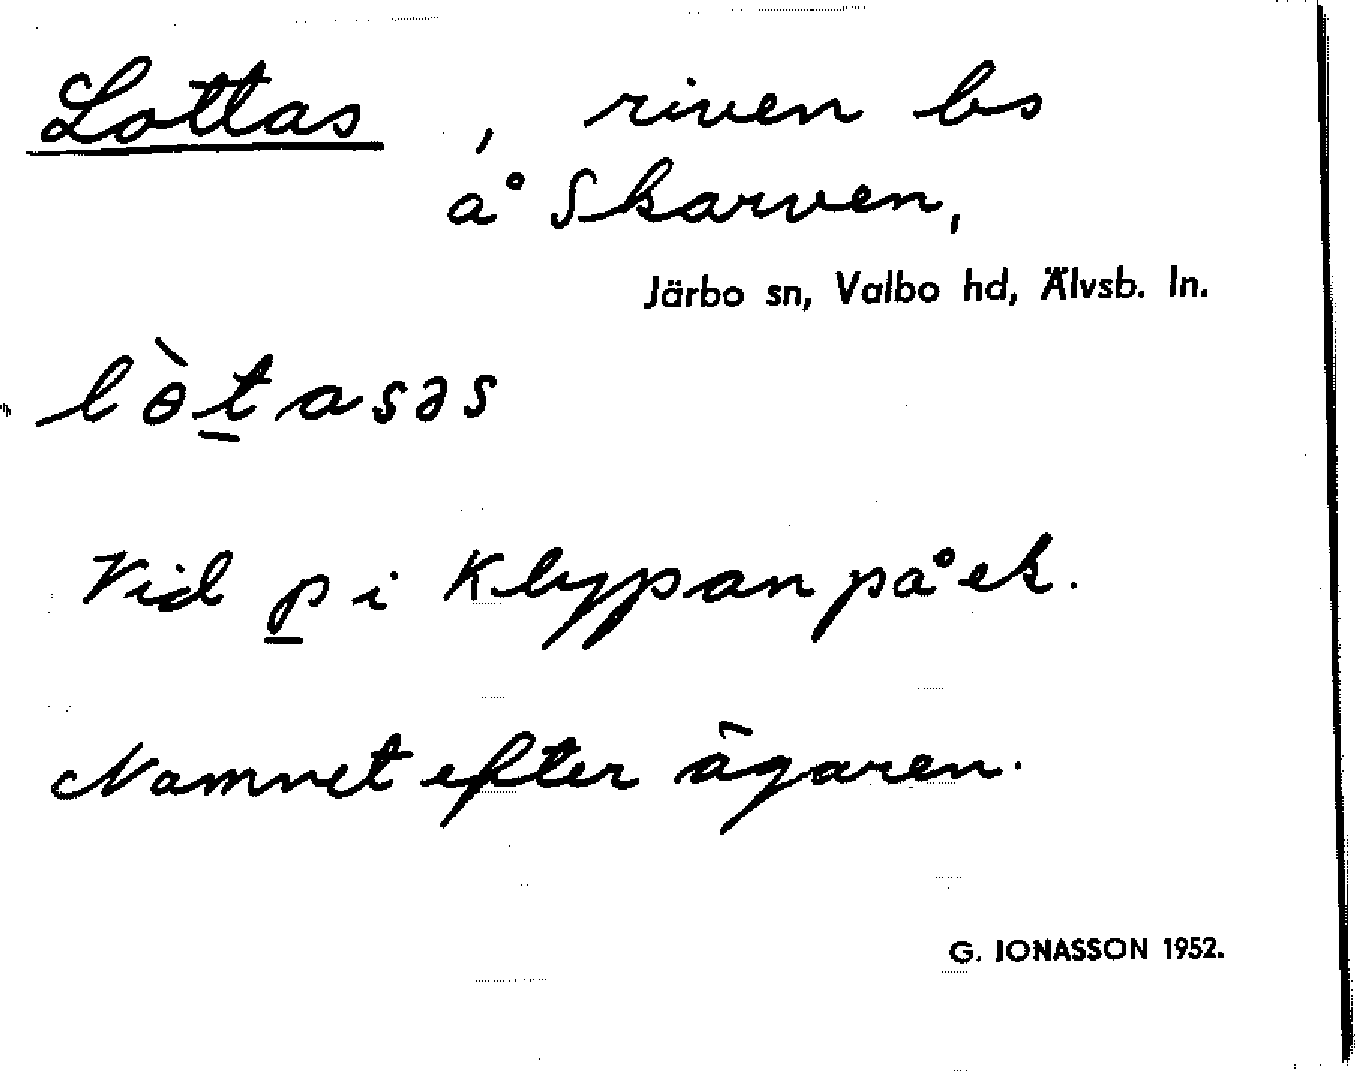 Lottas, riven bs
å Skarven,
Järbo sn, Valbo hd, Älvsb. ln.
lòtasəs
Vid p i Klypan på ek.
Namnet efter ägaren.
G. IONASSON 1952.